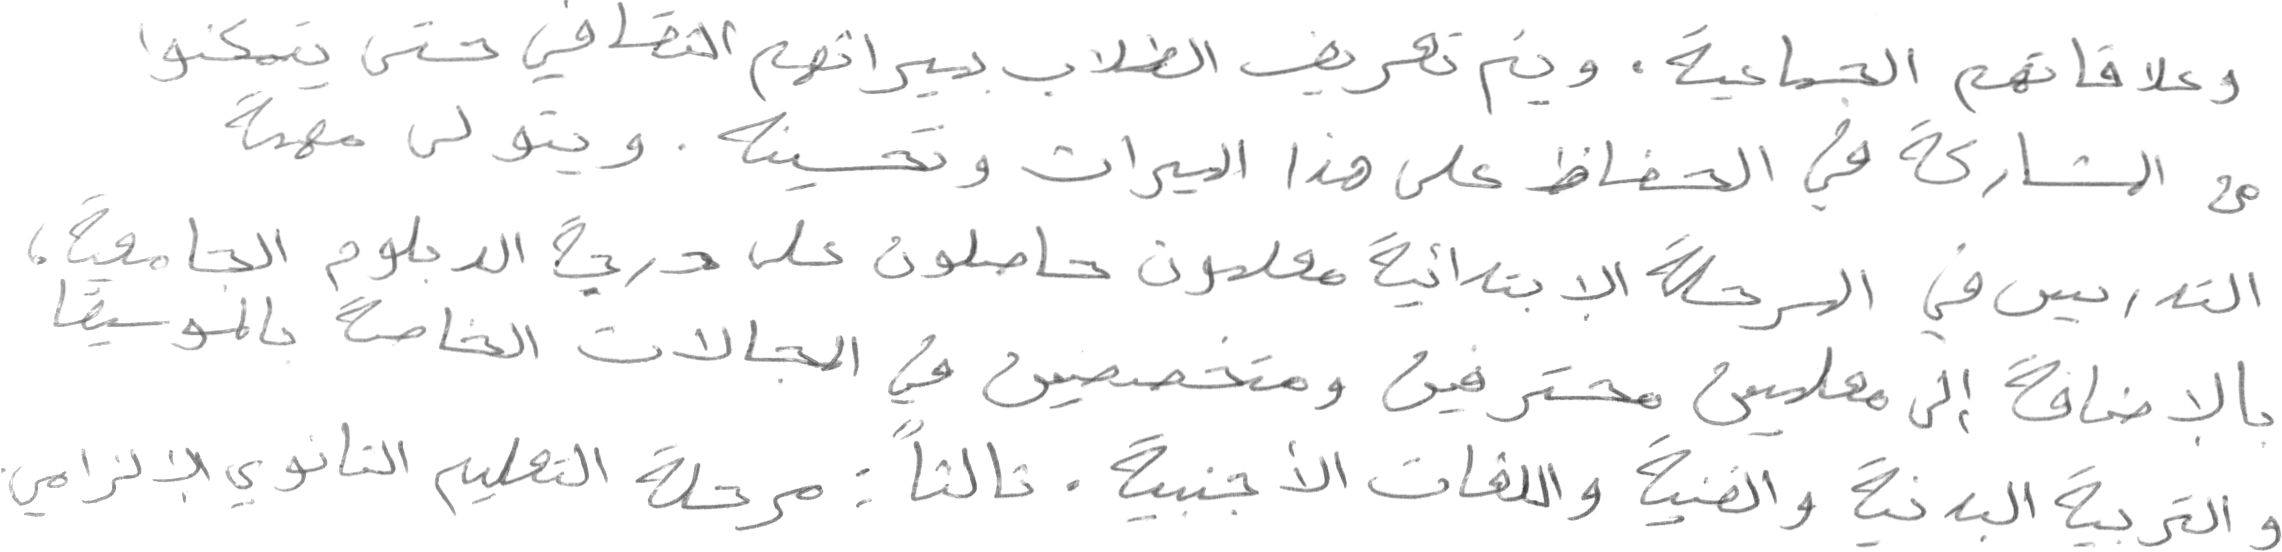 وعلاقاتهم الجماعية. ويتم تعريف الطلاب بميراثهم الثقافي حتى يتمكنوا
من المشاركة في الحفاظ على هذا الميراث وتحسينه. ويتولى مهمة
التدريس في المرحلة الابتدائية معلمون حاصلون على درجة الدبلوم الجامعية،
بالإضافة إلى معلمين محترفين ومتخصصين في المجالات الخاصة بالموسيقا
والتربية البدنية والفنية واللغات الأجنبية. ثالثاً: مرحلة التعليم الثانوي الإلزامي